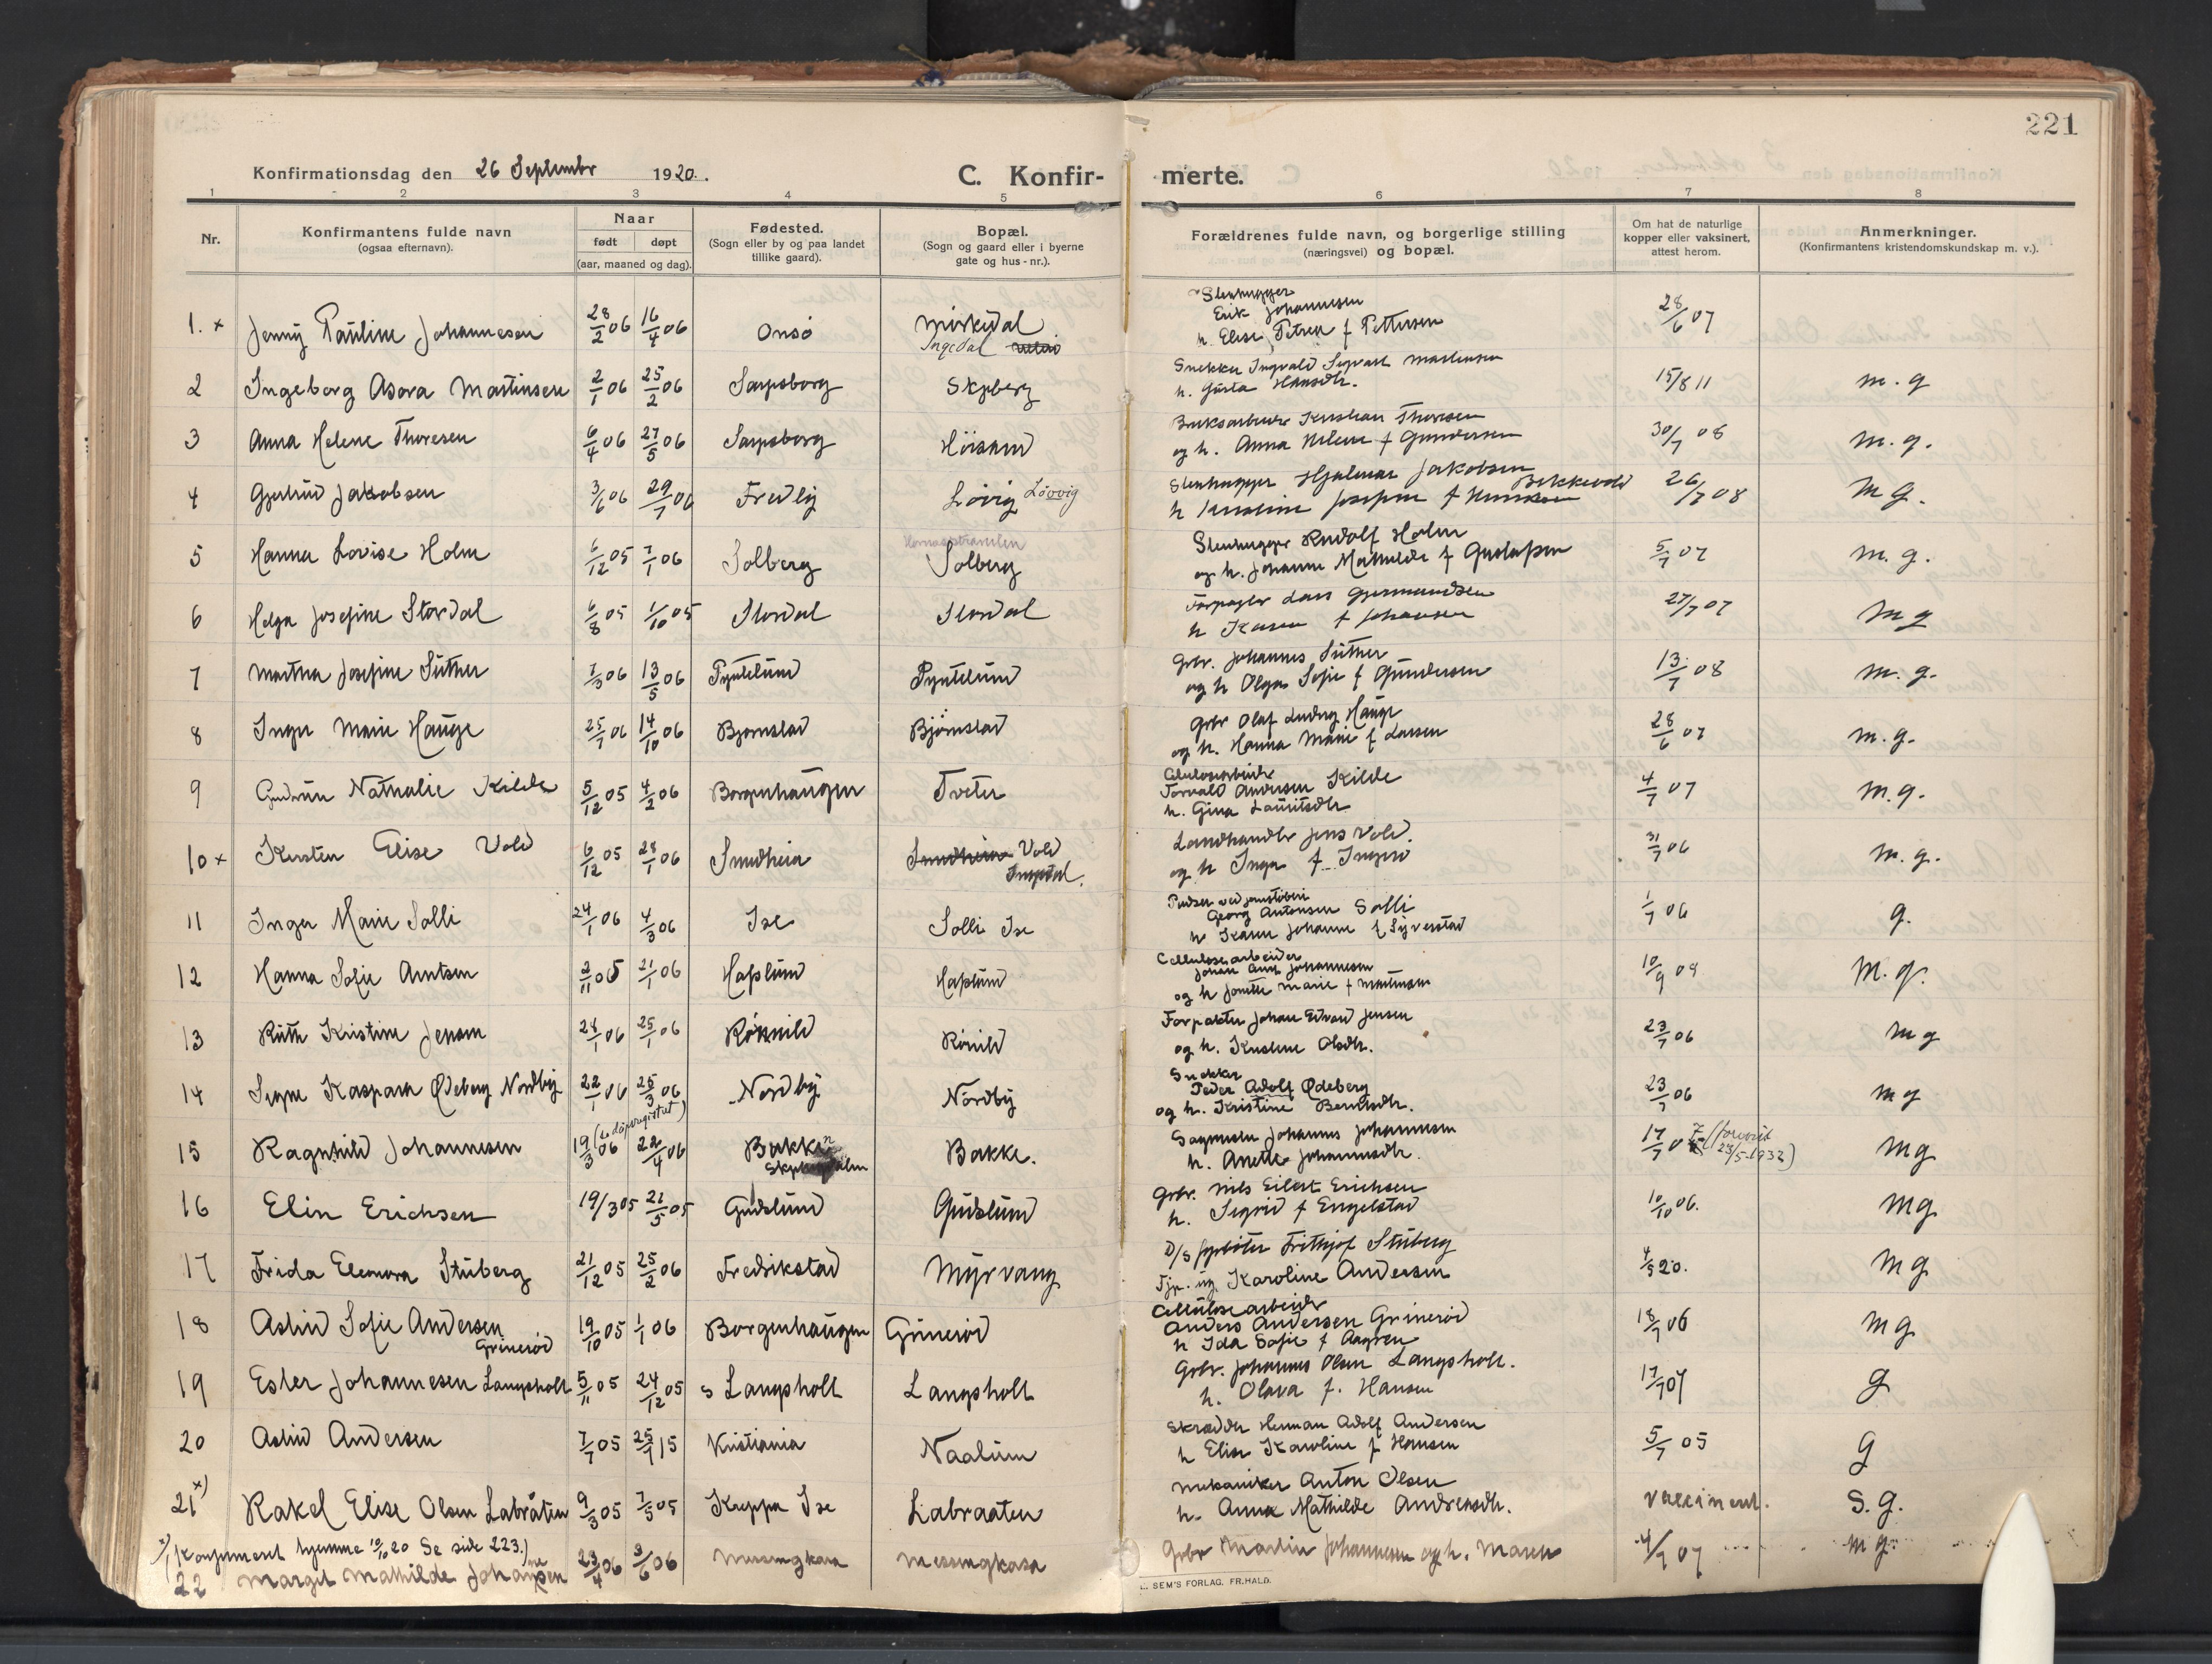 221
Konfirmationsdag den 26 September 1920.
C. Konfir-
merte.
1 2 3 4 5 6 7 8
Nr.
Konfirmantens fulde navn
(ogsaa efternavn).
Naar
født døpt
(aar, maaned og dag).
Fødested.
(Sogn eller by og paa landet
tillike gaard).
Bopæl.
(Sogn og gaard eller i byerne
gate og hus-nr.).
Forældrenes fulde navn, og borgerlige stilling
(næringsvei) og bopæl.
Om hat de naturlige
kopper eller vaksinert,
attest herom.
Anmerkninger.
(Konfirmantens kristendomskundskap m. v.).
1. x Jenny Pauline Johannesen 28/2 06 16/4 06 Onsø
Ingedal
Erik Johannesen
h. Elise Petrea f Pettersen
28/6 07
2 Ingeborg Asora Martinsen 2/1 06 25/2 06 Sarpsborg Skjeberg
Snekker Ingvald Sigvart Martinsen
h. Gusta Hansdtr.
15/8 11 m. g
3 Anna Helene Thoresen 6/4 06 27/5 06 Sarpsborg Høisand
Bruksarbeider Kristian Thoresen
og h. Anna Helene f Gundersen
30/7 08 m. g.
4 Gjertrud Jakobsen 3/6 06 29/7 06 Fredly Løvig Løvvig
Stenhugger Hjalmar Jakobsen Bekkevold
h Karoline Josefine f
26/7 08 m g.
5 Hanna Lovise Holm 6/12 05 7/1 06 Solberg Solberg
Stenhugger Rudolf Holm
og h. Johanne Mathilde f Gustafsen
5/7 07 m. g.
6 Helga Josefine Stordal 6/8 05 1/10 05 Stordal Stordal
Forpagter Lars Gjermundsen
h Karen f Johansen
27/7 07 m g
7 Martha Josefine Suther 7/3 06 13/5 06 Pyntelund Pyntelund
Grbr. Johannes Suther
og h Olga Sofie f Gundersen
13/7 08 m. g.
8 Inger Marie Hauge 25/7 06 14/10 06 Bjørnstad Bjørnstad
Grbr Olaf Ludvig Hauge
og h. Hanna Marie f Larsen
28/6 07 m. g.
9 Gudrun Nathalie Kilde 5/12 05 4/2 06 Borgenhaugen Tveter
Celulosearbeider
Torvald Andersen Kilde
h. Gina Lauritsdtr
4/7 07 m. g.
10 x Kirsten Elise Vold 6/12 05 28/1 06 Smedheia Smedheia Vold
Ingedal.
Landhandler Jens Vold.
og h Inga f. Ingerø
31/7 06 m. g.
11 Inger Marie Solli 24/1 06 4/3 06 Ise Solli Ise
Georg Antonsen Solli
h Karen Johanne f Syverstad
1/7 06 g.
12 Hanna Sofie Arntsen 2/11 05 21/1 06 Haslund Haslund
Cellulosearbeider
Johan Arnt Johannesen
og h Janette Marie f Martinsen
10/9 08 m. g.
13 Ruth Kristine Jensen 28/1 06 25/1 06 Rønnild Rønild
Forpakter Johan Edvard Jensen
og h. Kristine Olsdtr.
23/7 06 m g
14 Signe Kaspara Ødeberg Nordby 22/1 06 25/3 06 Nordby Nordby
Snekker
Peder Adolf Ødeberg
og h. Kristine Berntsdtr.
23/7 06 m g
(se dåpsregistret)
15 Ragnhild Johannesen 19/3 06 22/4 06 Bakken Bakke.
Sagmester Johannes Johannesen
h. Anette Johannesdtr.
17/7 07 23/5-1932) m g
16 Elin Erichsen 19/3 05 21/5 05 Gudslund Gudslund
Grbr. Nils Eilert Erichsen
h. Sigrid f Engelstad
10/10 06. m g
17 Frida Eleonora Stuberg 21/12 05 25/2 06 Fredrikstad Myrvang
D/s fyrbøter Frithjof Stuberg
Tjp. ug Karoline Andersen
4/5 20. m g
18 Astrid Sofie Andersen
Grinerød
19/10 05 1/1 06 Borgenhaugen Grinerød
Cellulosearbeider
Anders Andersen Grinerød
h Ida Sofie f Aagren
18/7 06 m g
19 Ester Johannesen Langsholt 5/11 05 24/12 05 s Langsholt Langsholt
Grbr. Johannes Olsen Langsholt.
h. Olava f. Hansen
17/7 07 g
20 Astrid Andersen 7/7 05 25/7 15 Kristiania Naalum
Skrædder Herman Adolf Andersen
h Elise Karoline f Hansen
5/7 05 g
21 x) Rakel Elise Olsen Labråten 9/3 05 7/5 05 Kreppa Ise Labraaten
Mekaniker Anton Olsen
h. Anna Mathilde Andreasdtr.
vaccinert. s. g.
x) Konfirmert hjemme 10/10 20 Se side 223.)
22 Margit Mathilde Johannesen 23/4 06 3/6 06 Messingkasa Messingkasa
Grbr Martin Johannesen og h. Maren
4/7 07 m g.
SEM'S FORLAG. FR.HALD.